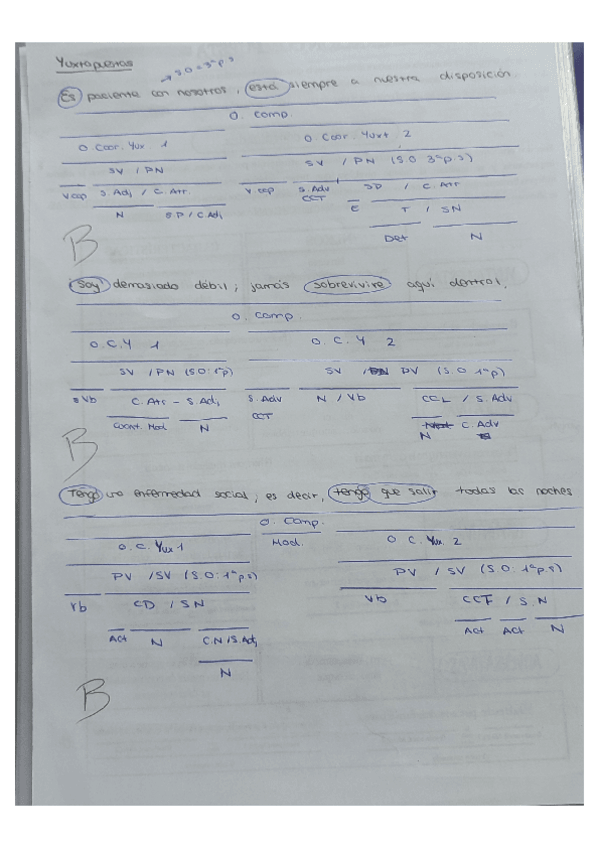 Yuxtapuestas
→ S.O = 3ª p s
Es paciente con nosotros, está siempre a nuestra disposición.
O. Comp.
O. Coor. Yux 1 O Coor. Yuxt 2
SV / PN SV / PN (SO 3ª p.s)
V cop S. Adj / C. Atr V. cop S. Adv CCT SP / C. Atr
N SP / C. Adj E T / SN
Det N
B
Soy demasiado débil; jamás sobreviviré aquí dentro.
O. Comp.
O.C.Y 1 O. C. Y 2
SV / PN (SO: 1ª p) SV / PV (S.O 1ª p)
Vb C. Atr - S. Adj S. Adv CCT N / Vb CCL / S. Adv
Cuant. Mod N N C. Adv
B
Tengo una enfermedad social, es decir, tengo que salir todas las noches
O. Comp.
O. C. Yux 1 Mod. O C. Yux. 2
PV / SV (S O: 1ª p.s) PV / SV (S O: 1ª p.s)
Vb CD / SN Vb CCT / S. N
Act N C.N / S. Adj Act Act N
N
B